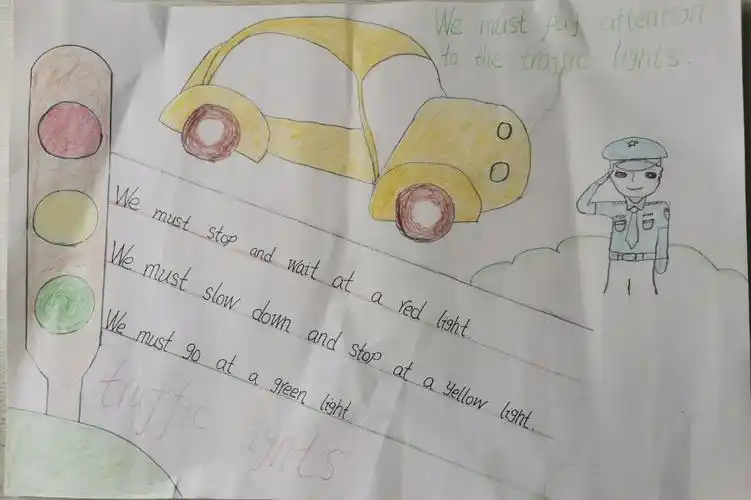 We must pay attention
to the traffic lights.
We must stop and wait at a red light.
We must slow down and stop at a yellow light.
We must go at a green light.
traffic lights